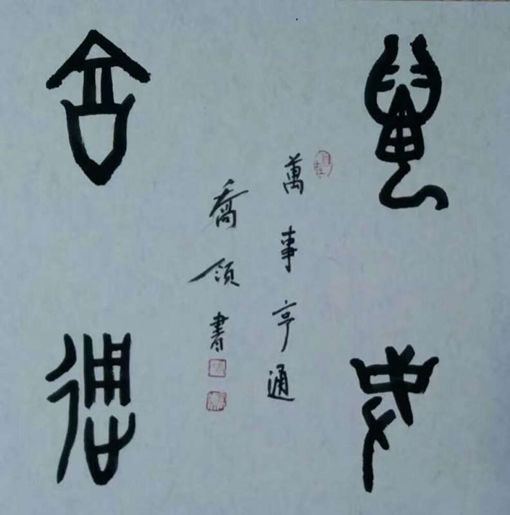 萬事
亨通
萬事亨通
喬領書